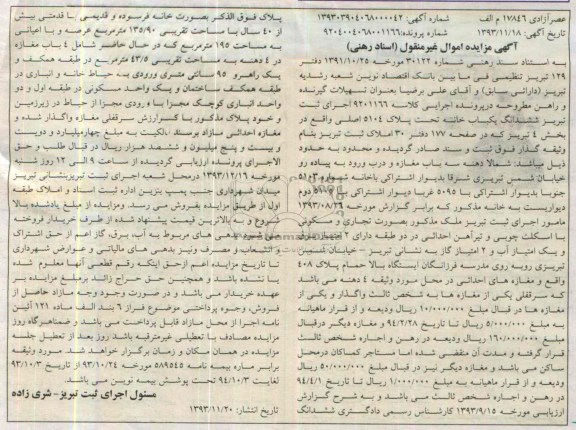 عصرآزادی ۱۷۸۴۶ م الف    شماره آگهی: ۱۳۹۳۰۳۹۰۴۰۶۸۰۰۰۰۴۲
تاریخ آگهی: ۱۳۹۳/۱۱/۱۸    شماره پرونده: ۹۲۰۴۰۰۴۰۶۸۰۰۱۱۶۶
آگهی مزایده اموال غیرمنقول (اسناد رهنی)
به استناد سند رهنی شماره ۳۰۱۲۲ مورخه ۱۳۹۱/۱۰/۲۵ دفتر
۱۲۹ تبریز تنظیمی فی ما بین بانک اقتصاد نوین شعبه رشدیه
تبریز (دارائی سابق) و آقای علی برضیا بعنوان تسهیلات گیرنده
و راهن مطروحه درپرونده اجرایی کلاسه ۹۲۰۱۱۶۶ اجرای ثبت
تبریز ششدانگ یکباب خانه تحت پلاک ۵۱۰۴ اصلی واقع در
بخش ۴ تبریز که در صفحه ۱۷۷ دفتر ۳۰ املاک ثبت تبریز بنام
وثیقه گذار فوق ثبت و سند صادر گردیده و محدود به حدود
ذیل میباشد: شمالا دهنه سه باب مغازه و درب ورود به پیاده رو
خیابان شمس تبریزی شرقا بدیوار اشتراکی باخانه شماره ۵۱۰۳
جنوبا بدیوار اشتراکی با ۵۰۹۵ غربا دیوار اشتراکی دوم
دیواریست به خانه مذکور که برابر گزارش مورخه ۱۳۹۳/۰۸/۲۶
مامور اجرای ثبت تبریز ملک مذکور بصورت تجاری و مسکونی
با اسکلت چوبی و تیرآهن احداثی در دو طبقه دارای ۲ امتیاز برق
و یک امتیاز آب و ۲ امتیاز گاز به نشانی تبریز - خیابان شمس
تبریزی روبه روی مدرسه فرزانگان ایستگاه بالا حمام پلاک ۴۰۸
واقع و مغازه های احداثی در محل مورد وثیقه ۴ دهنه می باشد
که سرقفلی یکی از مغازه ها به شخص ثالث واگذار و یکی از
مغازه ها در قبال مبلغ ۱۰/۰۰۰/۰۰۰ ریال ودیعه و از قرار ماهیانه
به مبلغ ۵/۰۰۰/۰۰۰ ریال تا تاریخ ۹۴/۲/۲۸ و مغازه دیگر درقبال
مبلغ ۱۶۰/۰۰۰/۰۰۰ ریال ودیعه در رهن و اجاره شخص ثالث
قرار گرفته و مدت آن منقضی شده اما مستاجر کماکان درمحل
ساکن می باشد و مغازه دیگر نیز در قبال مبلغ ۵۰/۰۰۰/۰۰۰ ریال
ودیعه و از قرار ماهیانه به مبلغ ۱/۰۰۰/۰۰۰ ریال تا تاریخ ۹۴/۴/۱
در رهن و اجاره شخص ثالث می باشد و به شرح گزارش
ارزیابی مورخه ۱۳۹۳/۹/۱۵ کارشناس رسمی دادگستری ششدانگ
پلاک فوق الذکر بصورت خانه فرسوده و قدیمی با قدمتی بیش
از ۴۰ سال با مساحت تقریبی ۱۳۵/۹۰ مترمربع عرصه و با اعیانی
به مساحت ۱۹۵ مترمربع که در حال حاضر شامل ۴ باب مغازه
در ۴ دهنه به مساحت تقریبی ۴۳/۵ مترمربع در طبقه همکف و
یک راهرو ۹۵ سانتی متری ورودی به حیاط خانه و انباری در
طبقه همکف ساختمان و یک واحد مسکونی در طبقه اول و دو
واحد انباری کوچک مجزا با ورودی مجزا از حیاط در زیرزمین
و خود پلاک مذکور با کسرارزش سرقفلی مغازه واگذار شده و
مغازه احداثی مازاد برسند مالکیت به مبلغ چهارمیلیارد و دویست
و بیست و پنج میلیون و ششصد هزار ریال در قبال طلب و حق
الاجرای پرونده ارزیابی گردیده از ساعت ۹ الی ۱۲ روز شنبه
مورخه ۱۳۹۳/۱۲/۱۶ درمحل شعبه اجرای ثبت تبریزبنشانی تبریز
میدان شهرداری جنب پمپ بنزین اداره ثبت اسناد و املاک طبقه
اول از طریق مزایده بفروش می رسد. ومزایده از مبلغ یادشده بالا
شروع و به بالاترین قیمت پیشنهاد شده از طرف خریدار فروخته
می شود بدهی های مربوط به آب، برق، گاز اعم از حق اشتراک
و انشعاب و مصرف ونیز بدهی های مالیاتی و عوارض شهرداری
تا تاریخ مزایده اعم ازحق اینکه رقم قطعی آنها معلوم شده
یا نشده باشد و همچنین حق حراج زائد برمبلغ مزایده بر
عهده خریدار می باشد و در صورت وجود وجه مازاد حاصل از
فروش، وجوه پرداختی موضوع فراز ۶ بند الف ماده ۱۲۱ آئین
نامه اجرا از محل مازاد قابل پرداخت می باشد و ضمناهرگاه روز
مزایده مصادف با تعطیلی غیرمترقبه باشد روز بعد از تعطیل جلسه
مزایده در همان مکان و زمان برگزار خواهد شد. مورد وثیقه
برابر بیمه نامه ۵۸۹۵۴۵ مورخه ۹۳/۱۰/۲۴ از تاریخ ۹۳/۱۰/۳
لغایت ۹۴/۱۰/۳ تحت پوشش بیمه نوین می باشد.
مسئول اجرای ثبت تبریز- شری زاده
تاریخ انتشار: ۱۳۹۳/۱۱/۲۰